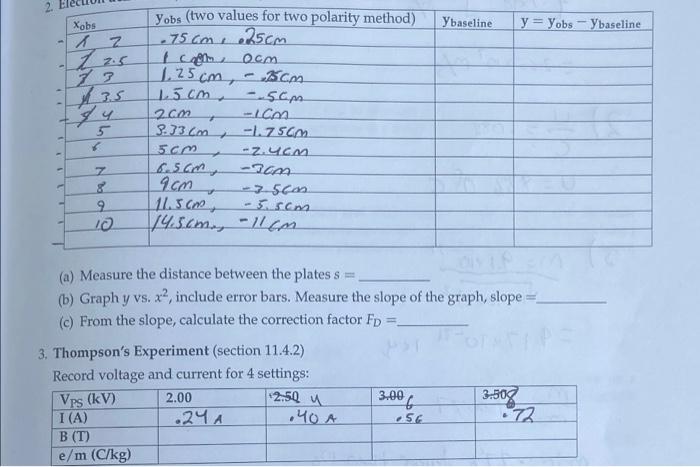 2. Electron
Xobs yobs (two values for two polarity method) ybaseline y = yobs − ybaseline
2 .75 cm, .25cm
2.5 1 cm, 0cm
3 1.25 cm, -.25cm
3.5 1.5 cm, -.5cm
4 2cm, -1cm
5 3.33 cm, -1.75cm
6 5cm, -2.4cm
7 6.5cm, -3cm
8 9cm, -3.5cm
9 11.5cm, -5.5cm
10 14.5cm, -11cm
(a) Measure the distance between the plates s =
(b) Graph y vs. x², include error bars. Measure the slope of the graph, slope =
(c) From the slope, calculate the correction factor FD =
3. Thompson's Experiment (section 11.4.2)
Record voltage and current for 4 settings:
VPS (kV) 2.00 2.50 4 3.00 6 3.50 8
I (A) .24 A .40 A .56 .72
B (T)
e/m (C/kg)